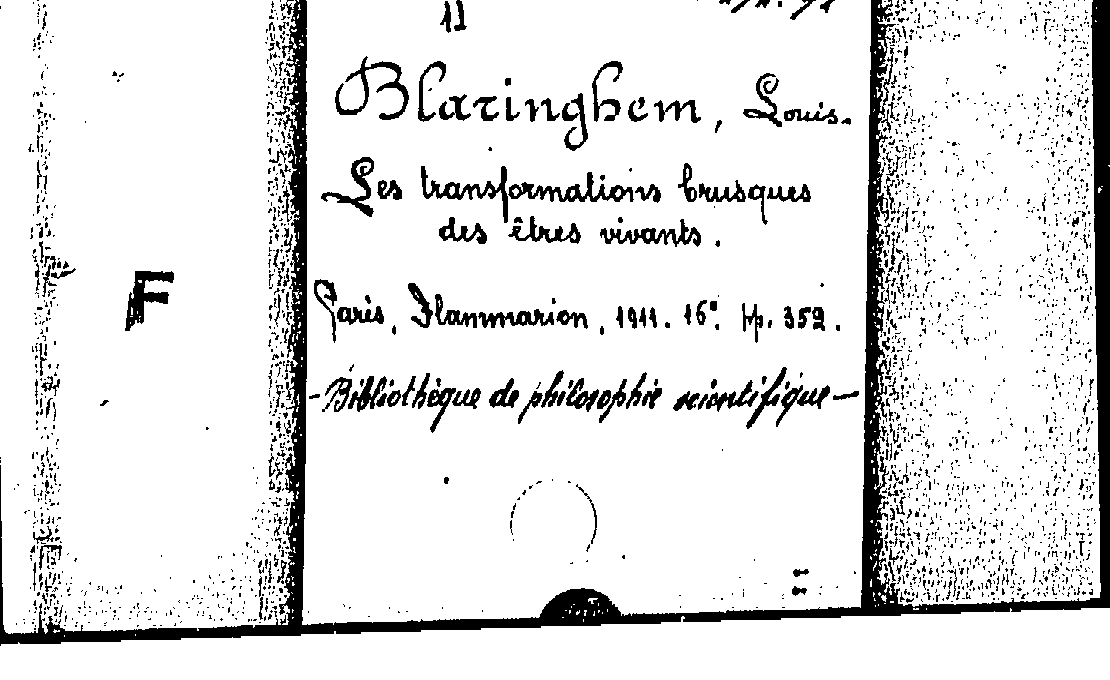 11
Blaringhem, Louis.
Les transformations brusques
des êtres vivants.
F
Paris, Flammarion, 1911. 16°. pp. 352.
- Bibliothèque de philosophie scientifique -